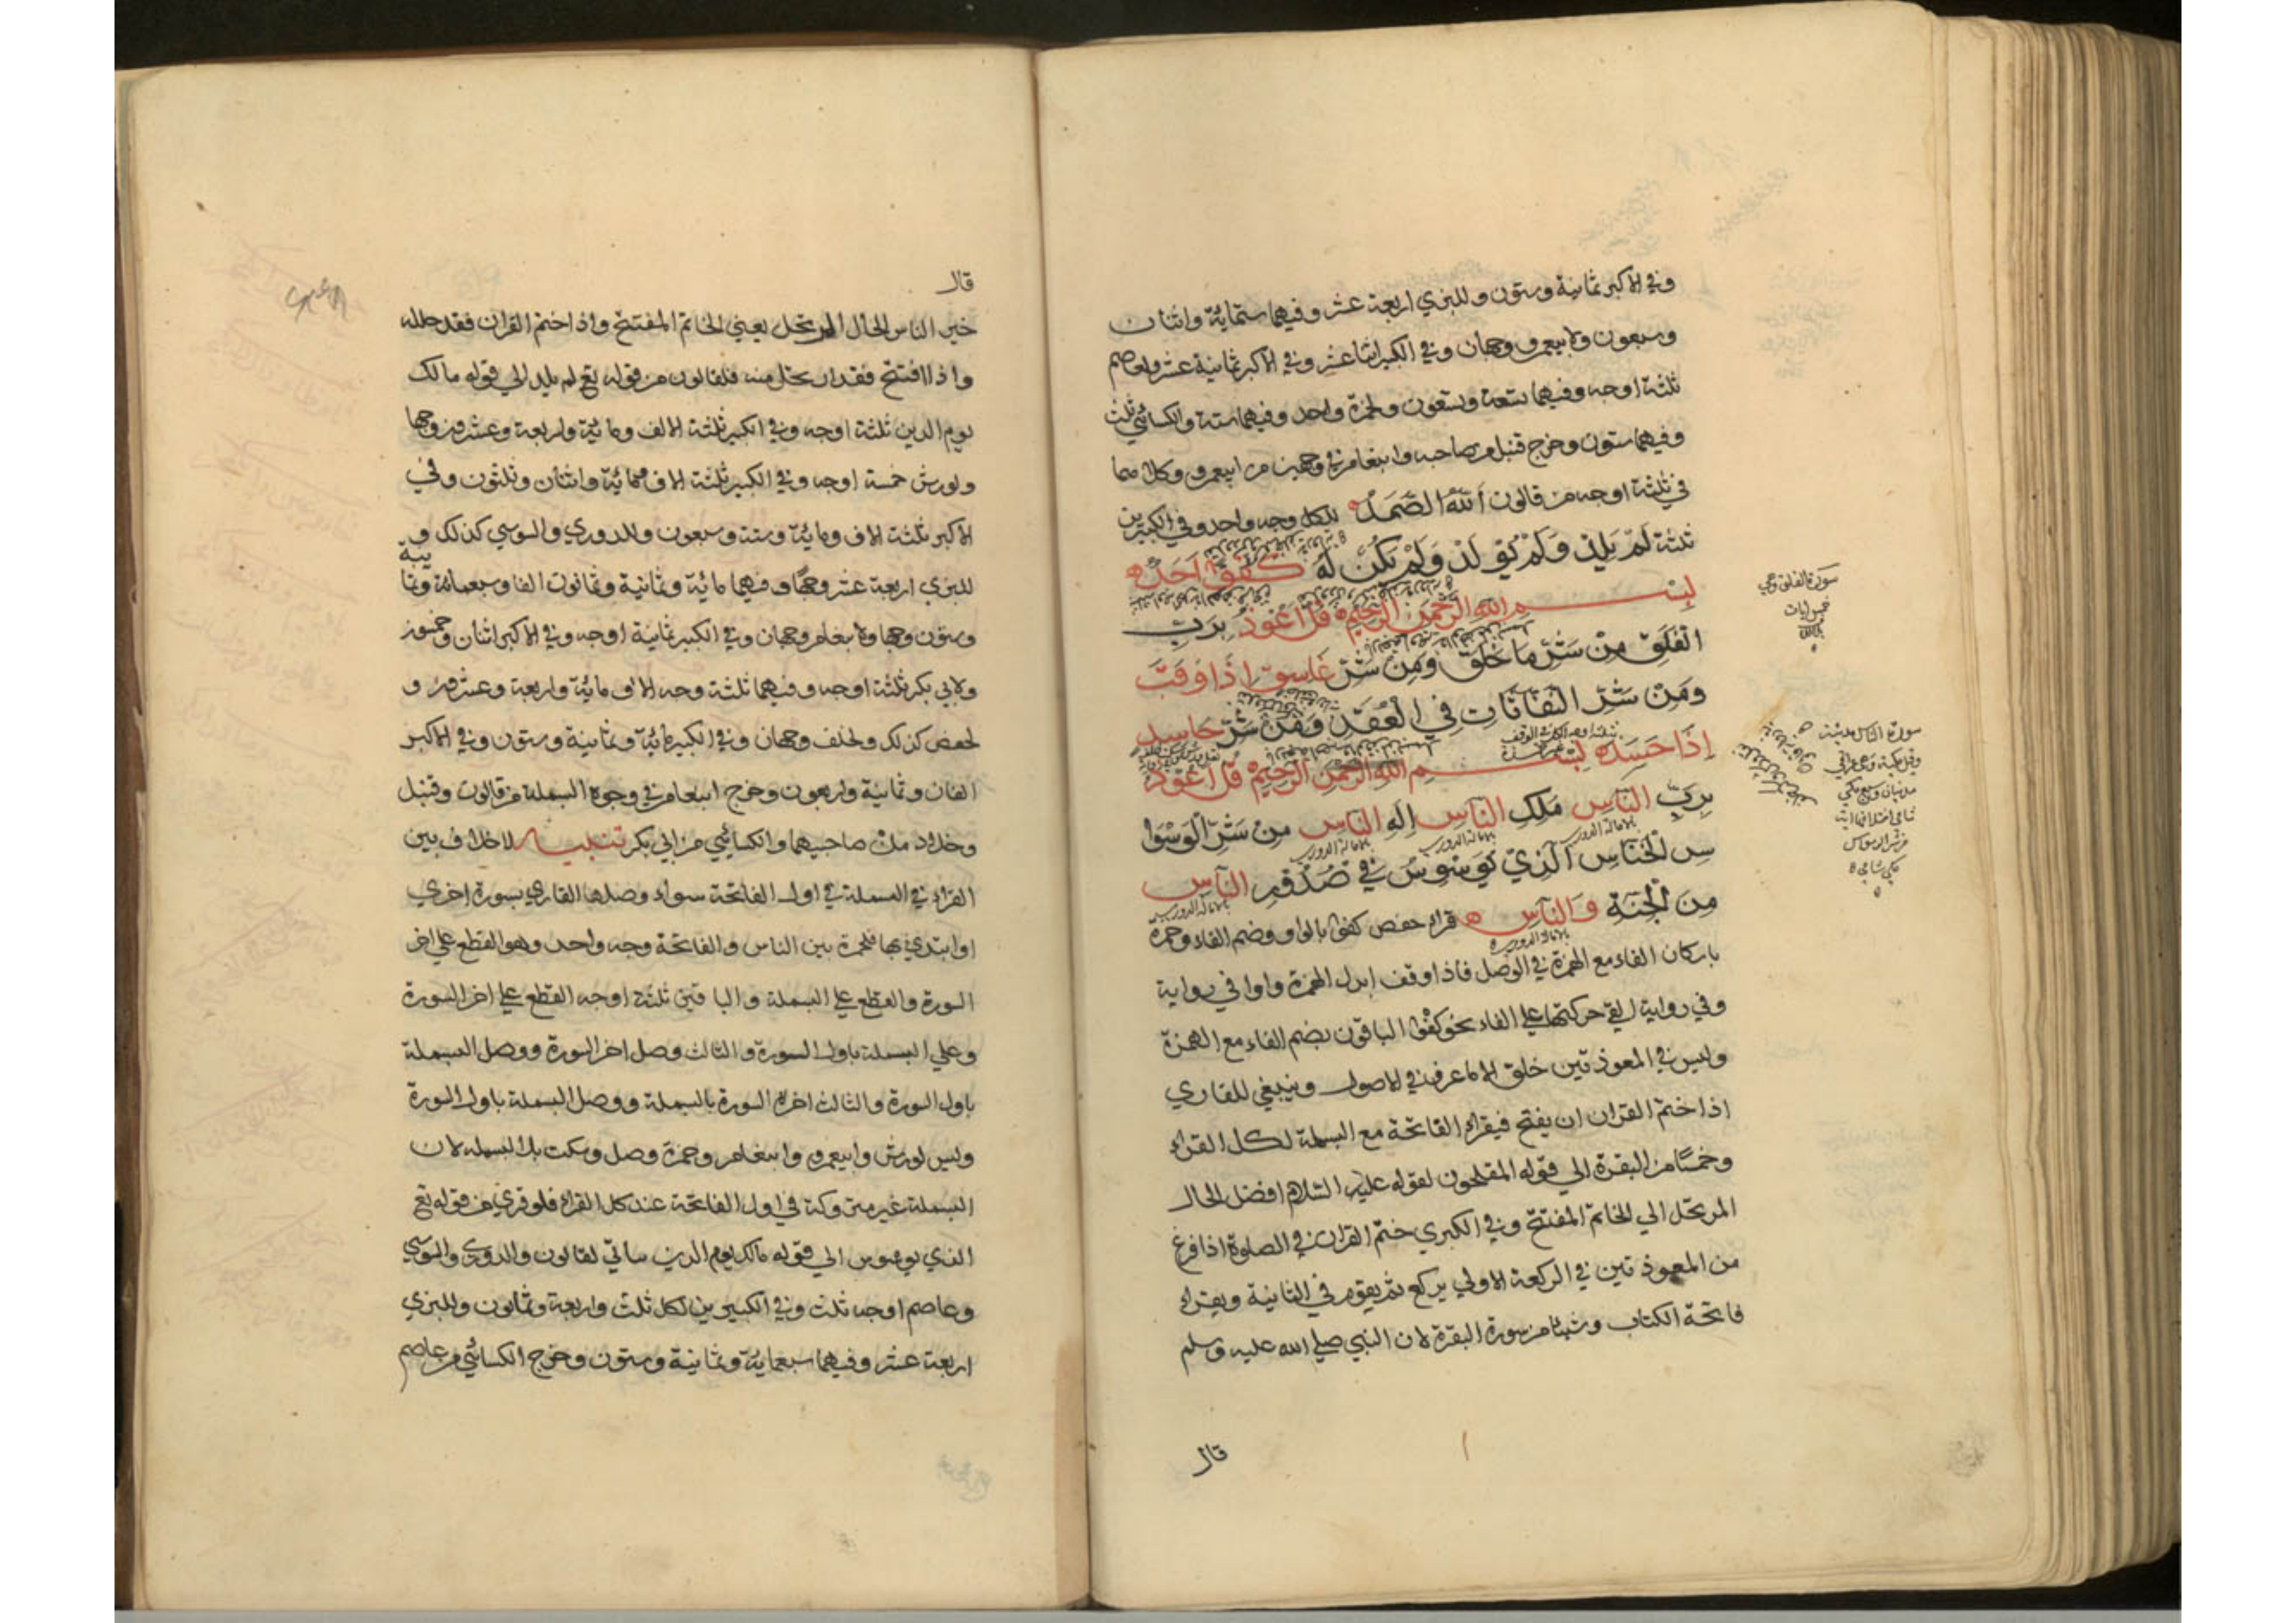 وفي الاكبر ثمانية وستون وللبزي اربعة عشر وفيهما ستماية واثنان
وسبعون ولابيعمرو وجهان وفي الكبير اثنا عشر وفي الاكبر ثمانية عشر ولعاصم
ثلثة اوجه وفيهما تسعة وتسعون ولحمزة واحد وفيهما ستة والكسائي ثلث
وفيهما ستون وخرج قنبل من صاحبه وابنعامر في وجهين من ابيعمرو وكلاهما
في ثلثة اوجه من قالون اَللهُ الصَّمَدُ للكل وجه واحد وفي الكبيرين
ثلثة لَمْ يَلِدْ وَلَمْ يُوْلَدْ وَلَمْ يَكُنْ لَهُ كُفُوًا اَحَدٌ
بِسْمِ اللهِ الرَّحْمٰنِ الرَّحِيْمِ قُلْ اَعُوْذُ بِرَبِّ
الْفَلَقِ مِنْ شَرِّ مَا خَلَقَ وَمِنْ شَرِّ غَاسِقٍ اِذَا وَقَبَ
وَمِنْ شَرِّ النَّفَّاثَاتِ فِي الْعُقَدِ وَمِنْ شَرِّ حَاسِدٍ
اِذَا حَسَدَ بِسْمِ اللهِ الرَّحْمٰنِ الرَّحِيْمِ قُلْ اَعُوْذُ
بِرَبِّ النَّاسِ مَلِكِ النَّاسِ اِلٰهِ النَّاسِ مِنْ شَرِّ الْوَسْوَا
بالامالة الدوري بالامالة الدوري بالامالة الدوري
سِ الْخَنَّاسِ اَلَّذِيْ يُوَسْوِسُ فِيْ صُدُوْرِ النَّاسِ
بالامالة الدوري
مِنَ الْجِنَّةِ وَالنَّاسِ قراء حفص كفوا بالواو وضم الفاء وحمزة
بالامالة الدوري
باسكان الفاء مع الهمزة في الوصل فاذا وقف ابدل الهمزة واوا في رواية
وفي رواية القي حركتها علي الفاء نحو كفوا الباقون بضم الفاء مع الهمزة
وليس في المعوذتين خلق الا ما عرف في الاصول وينبغي للقاري
اذا ختم القران ان يفتح فيقراء الفاتحة مع البسملة لكل القراء
وخمسًا من البقرة الي قوله المفلحون لقوله عليه السلام افضل الحال
المرتحل الي الخاتم المفتتح وفي الكبري ختم القران في الصلوة اذا فرغ
من المعوذتين في الركعة الاولي يركع ثم يقوم في الثانية ويقراء
فاتحة الكتاب وشيئا من سورة البقرة لان النبي صلي الله عليه وسلم
قال
سورة الفلق وهي
خمس ايات
سورة الناس مدنية
وقيل مكية وهي
قال
خير الناس الحال المرتحل يعني الخاتم المفتتح واذا ختم القران فقد حلله
واذا افتتح فقد ارتحل منه فلقالون من قوله تع لم يلد الي قوله مالك
يوم الدين ثلثة اوجه وفي الكبير ثلثة الالف وماية واربعة وعشرون وجها
ولورش خمسة اوجه وفي الكبير ثلثة الاف وماية واثنان وثلثون وفي
الاكبر ثلثة الاف وماية وستة وسبعون وللدوري والسوسي كذلك و
للبزي اربعة عشر وجهًا وفيهما مائية وثمانية وثمانون الفا وسبعمائة وثما
نية
وستون وجها ولابنعامر وجهان وفي الكبير ثمانية اوجه وفي الاكبر اثنان وخمسون
ولابي بكر ثلثة اوجه وفيهما ثلثة وجه الاف ماية واربعة وعشرون و
لحفص كذلك ولخلف وجهان وفي الكبير ماية وثمانية وستون وفي الاكبر
الفان وثمانية واربعون وخرج ابنعامر في وجوه البسملة من قالون وقنبل
وخلاد من صاحبيهما والكسائي من ابي بكر تنبيه لاخلاف بين
القراء في البسملة في اول الفاتحة سواء وصلها القاري بسورة اخري
او ابتدي بها فلحمزة بين الناس والفاتحة وجه واحد وهو القطع علي اخر
السورة والقطع علي البسملة والباقين ثلثة اوجه القطع علي اخر السورة
وعلي البسملة باول السورة والثالث وصل اخر السورة ووصل البسملة
باول السورة والثالث اخره السورة بالبسملة ووصل البسملة باول السورة
وليس لورش وابيعمرو وابنعامر وحمزة وصل وسكت بلا البسملة لان
البسملة غير متروكة في اول الفاتحة عند كل القراء فلو قري من قوله تع
الذي يوسوس الي قوله مالك يوم الدين ساتي لقالون والدوري والسوسي
وعاصم اوجه ثلث وفي الكبيرين لكل ثلث واربعة وثمانون وللبزي
اربعة عشر وفيهما سبعماية وثمانية وستون وخرج الكسائي من عاصم